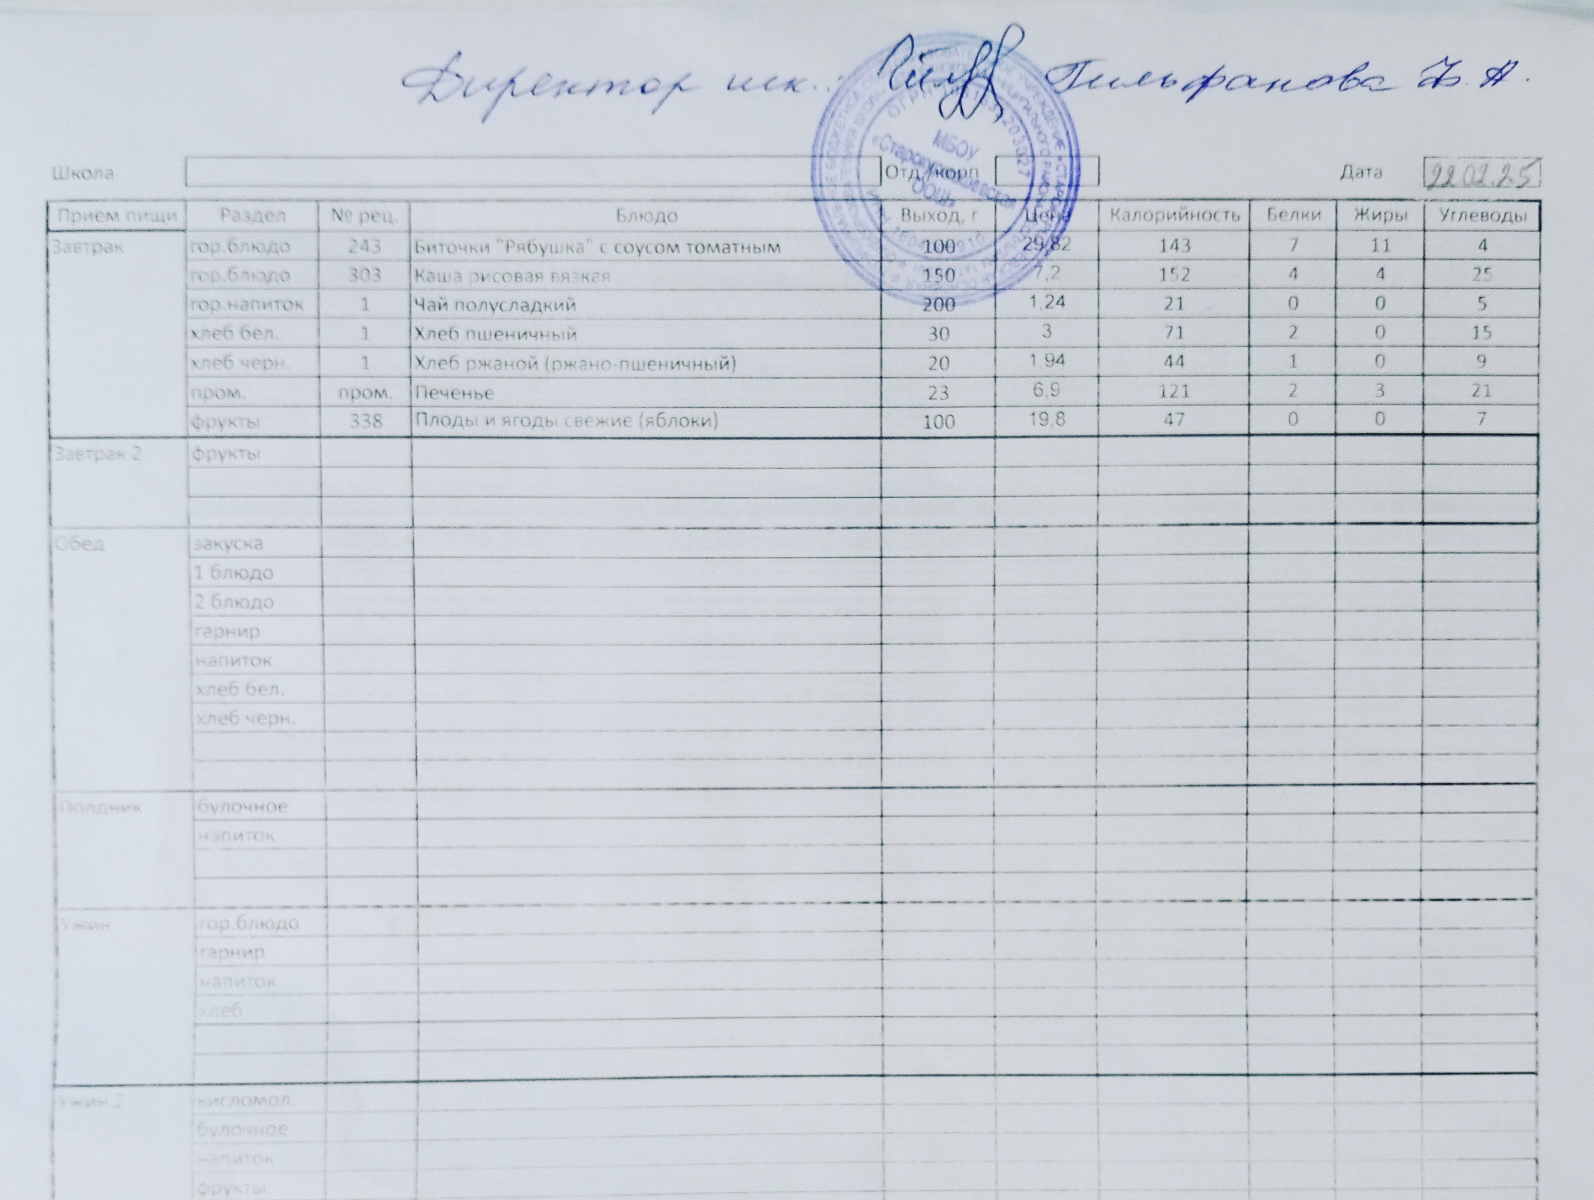 Директор шк.: Гильфанова Ф.А.
Школа Отд./корп Дата 22.02.25
Прием пищи Раздел № рец. Блюдо Выход, г Цена Калорийность Белки Жиры Углеводы
Завтрак гор.блюдо 243 Биточки "Рябушка" с соусом томатным 100 29,82 143 7 11 4
гор.блюдо 303 Каша рисовая вязкая 150 7,2 152 4 4 25
гор.напиток 1 Чай полусладкий 200 1,24 21 0 0 5
хлеб бел. 1 Хлеб пшеничный 30 3 71 2 0 15
хлеб черн. 1 Хлеб ржаной (ржано-пшеничный) 20 1,94 44 1 0 9
пром. пром. Печенье 23 6,9 121 2 3 21
фрукты 338 Плоды и ягоды свежие (яблоки) 100 19,8 47 0 0 7
Завтрак 2 фрукты
Обед закуска
1 блюдо
2 блюдо
гарнир
напиток
хлеб бел.
хлеб черн.
Полдник булочное
напиток
Ужин гор.блюдо
гарнир
напиток
хлеб
Ужин 2 кисломол.
булочное
напиток
фрукты
МБОУ
ООШ»